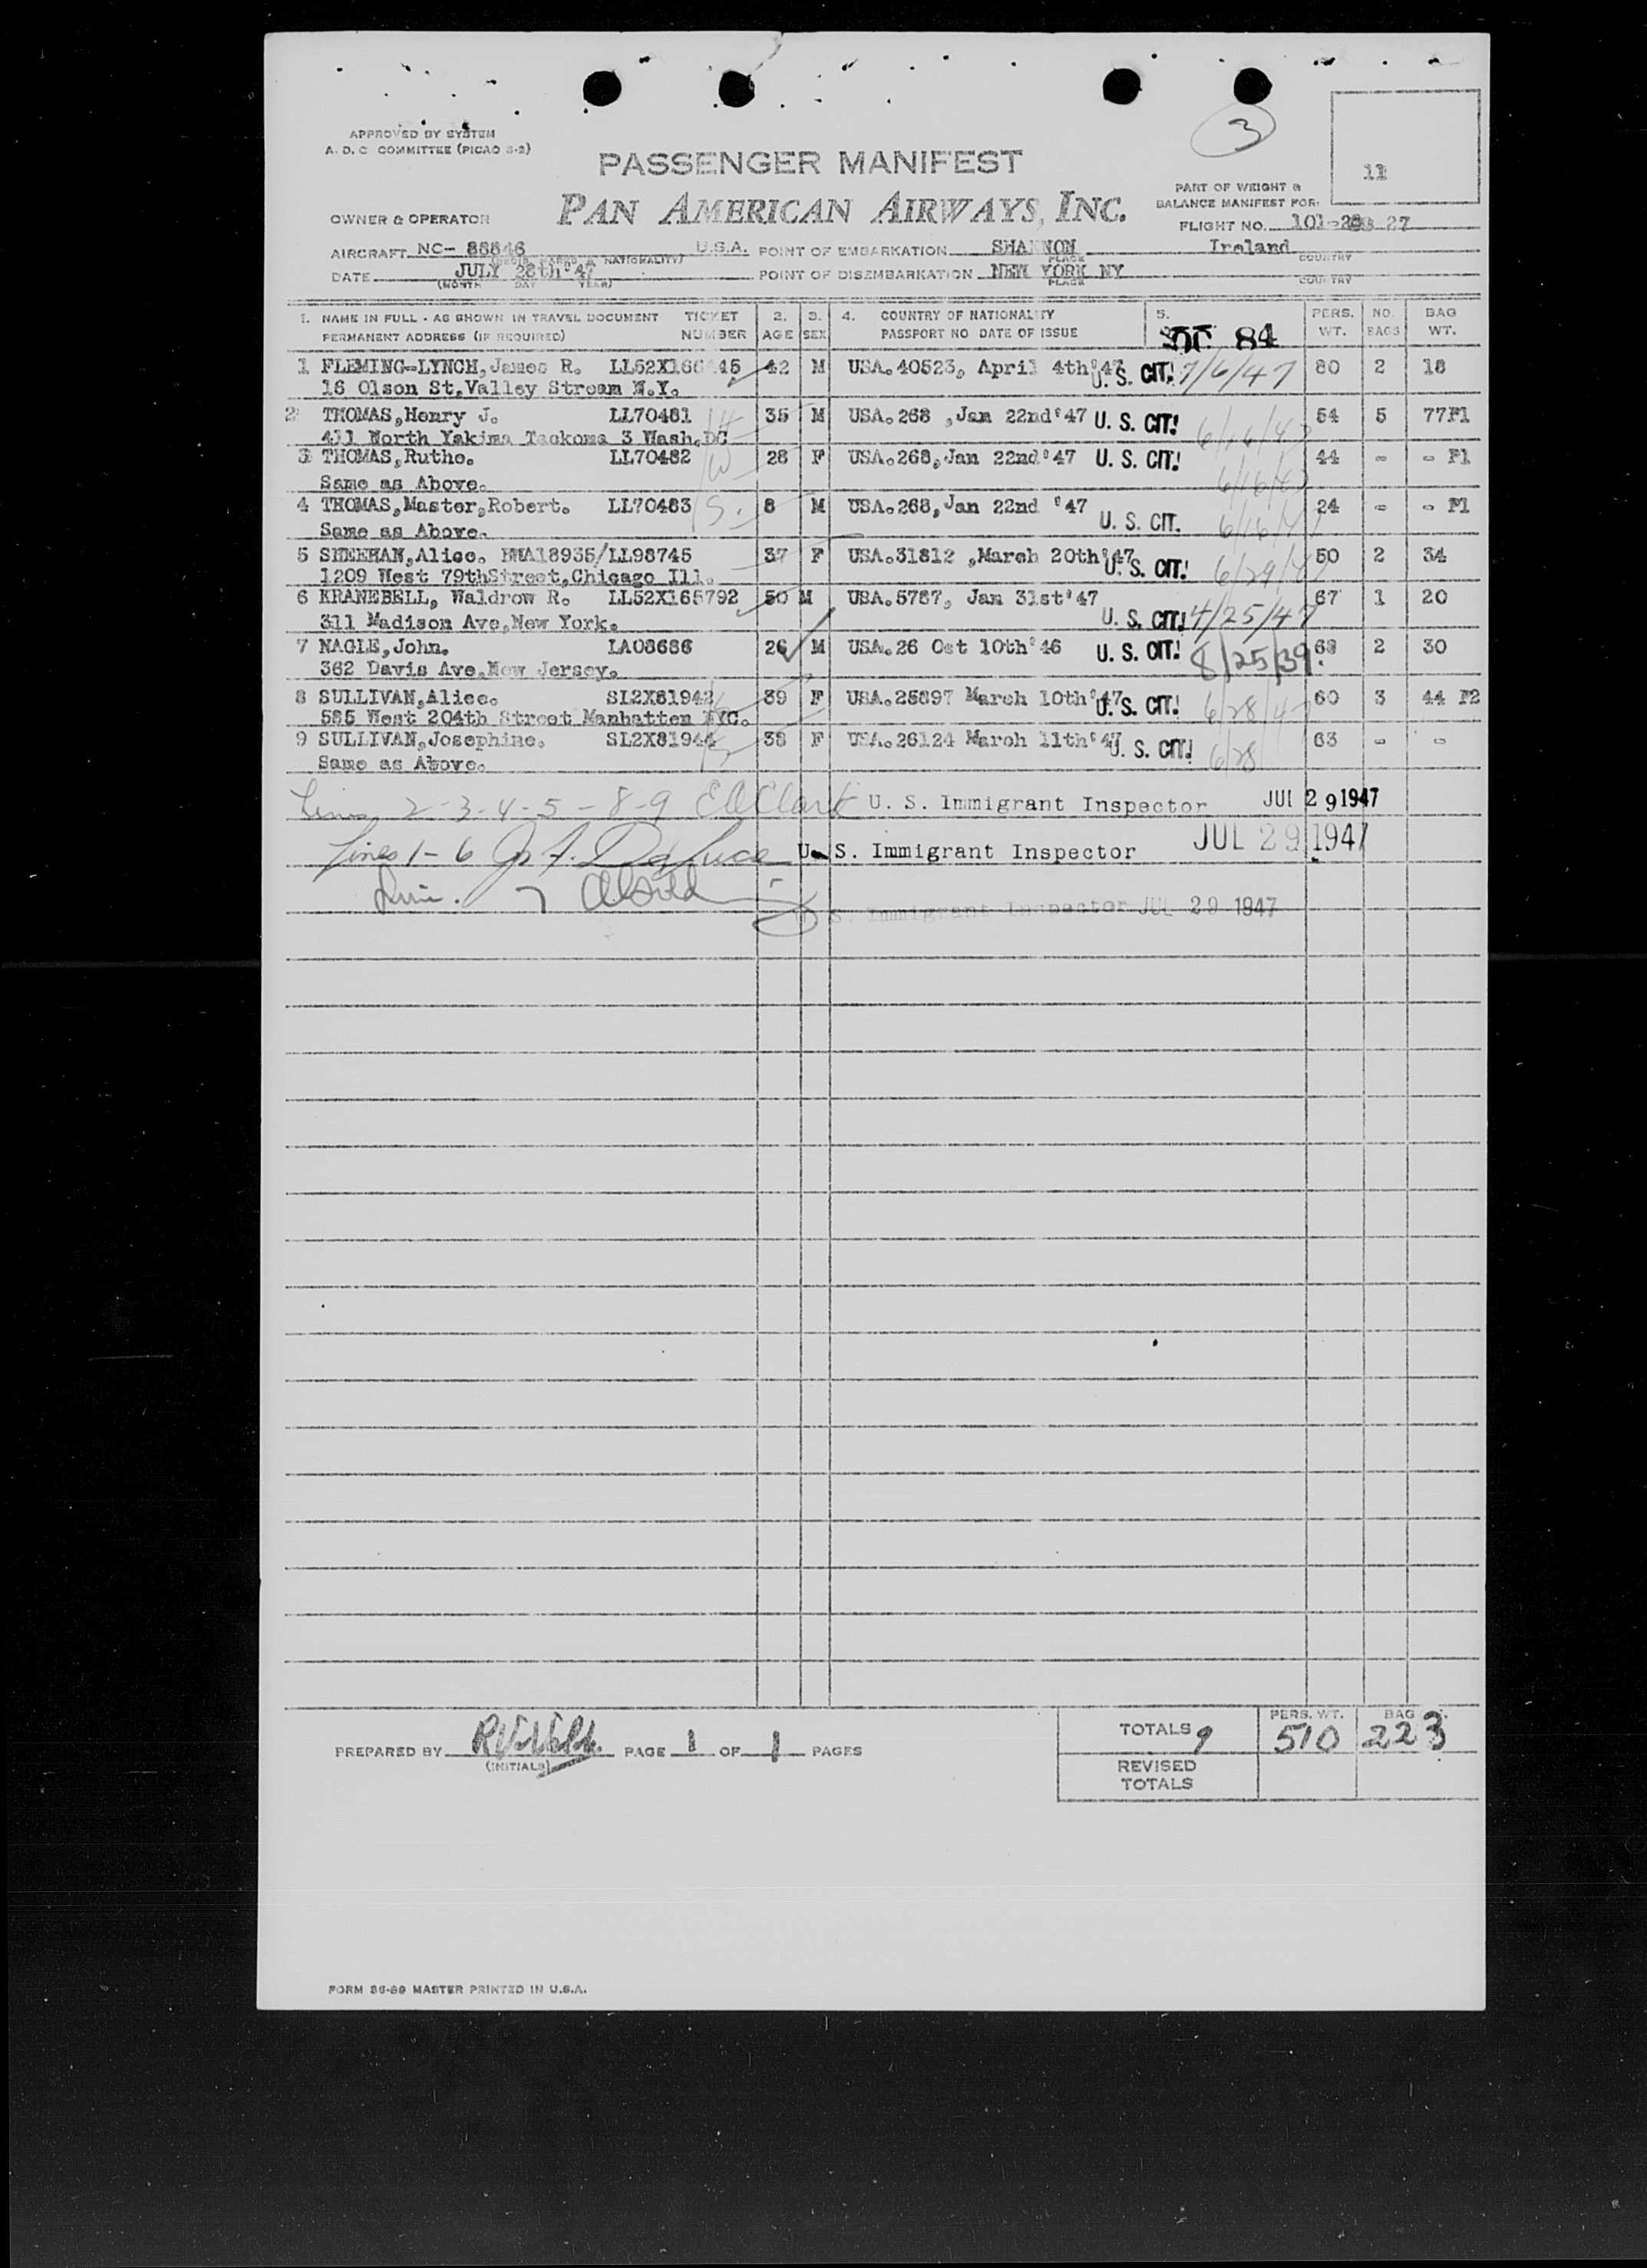 3
11
APPROVED BY SYSTEM
A. D. C. COMMITTEE (PICAO S-2)
PASSENGER MANIFEST
PAN AMERICAN AIRWAYS, INC.
PART OF WEIGHT &
BALANCE MANIFEST FOR:
OWNER & OPERATOR
FLIGHT NO. 101-28 27
AIRCRAFT NC- 88846 U.S.A. POINT OF EMBARKATION SHANNON Ireland
(REGIS. MARKS & NATIONALITY) PLACE COUNTRY
DATE JULY 28th '47 POINT OF DISEMBARKATION NEW YORK NY
(MONTH DAY YEAR) PLACE COUNTRY
1. NAME IN FULL - AS SHOWN IN TRAVEL DOCUMENT TICKET 2. 3. 4. COUNTRY OF NATIONALITY 5. PERS. NO. BAG
PERMANENT ADDRESS (IF REQUIRED) NUMBER AGE SEX PASSPORT NO DATE OF ISSUE 84 WT. BAGS WT.
1 FLEMING-LYNCH, James R. 42 M USA. 40523, April 4th '47 U. S. CIT. 7/6/47 80 2 18
16 Olson St, Valley Stream N.Y.
2 THOMAS, Henry J. LL70481 35 M USA. 268 , Jan 22nd '47 U. S. CIT. 6/16/47 54 5 77F1
411 North Yakima Tackoma 3 Wash, DC
3 THOMAS, Ruthe. LL70482 W 28 F USA. 268, Jan 22nd '47 U. S. CIT. 6/16/47 44 - - F1
Same as Above.
4 THOMAS, Master, Robert. LL70483 S. 8 M USA. 268, Jan 22nd '47 U. S. CIT. 6/16/47 24 - - F1
Same as Above.
5 SHEEHAN, Alice. LL98745 37 F USA. 31812 , March 20th '47 U. S. CIT. 6/29/47 50 2 34
1209 West 79thStreet, Chicago Ill.
6 KRANEBELL, Waldrow R. LL52X165792 50 M USA. 5787, Jan 31st '47 U. S. CIT. 4/25/47 67 1 20
311 Madison Ave, New York.
7 NAGLE, John. LA08686 26 M USA. 26 Oct 10th '46 U. S. CIT. 8/25/39. 68 2 30
362 Davis Ave, New Jersey.
8 SULLIVAN, Alice. SL2X81942 39 F USA. 25897 March 10th '47 U. S. CIT. 6/28/47 60 3 44 F2
585 West 204th Street Manhatten NYC.
9 SULLIVAN, Josephine. SL2X81944 38 F USA. 26124 March 11th '47 U. S. CIT. 6/28 63 - -
Same as Above.
Lines 2-3-4-5-8-9 E A Clark U. S. Immigrant Inspector JUL 29 1947
Lines 1-6 U. S. Immigrant Inspector JUL 29 1947
7 U. S. Immigrant Inspector JUL 29 1947
PREPARED BY PAGE 1 OF 1 PAGES
(INITIALS)
PERS. WT. BAG
TOTALS 9 510 223
REVISED
TOTALS
FORM 86-89 MASTER PRINTED IN U.S.A.